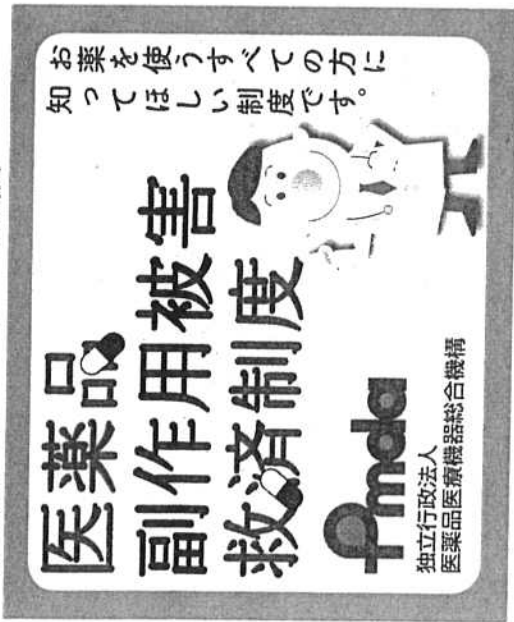 お薬を使うすべての方に
知ってほしい制度です。
医薬品
副作用被害
救済制度
Pmda
独立行政法人
医薬品医療機器総合機構